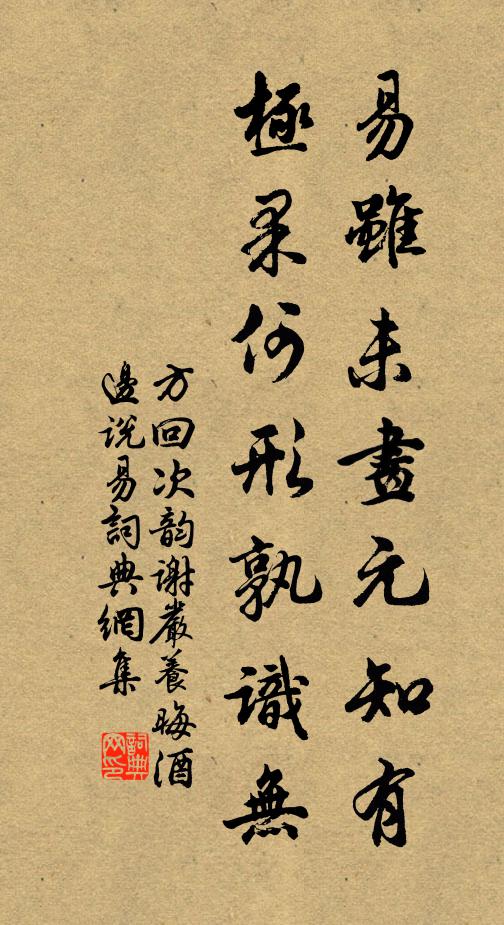 易雖未畫元知有
極果何形孰識無
方回次韵謝嚴養晦酒
邊說易詞典網集
詞典
网印